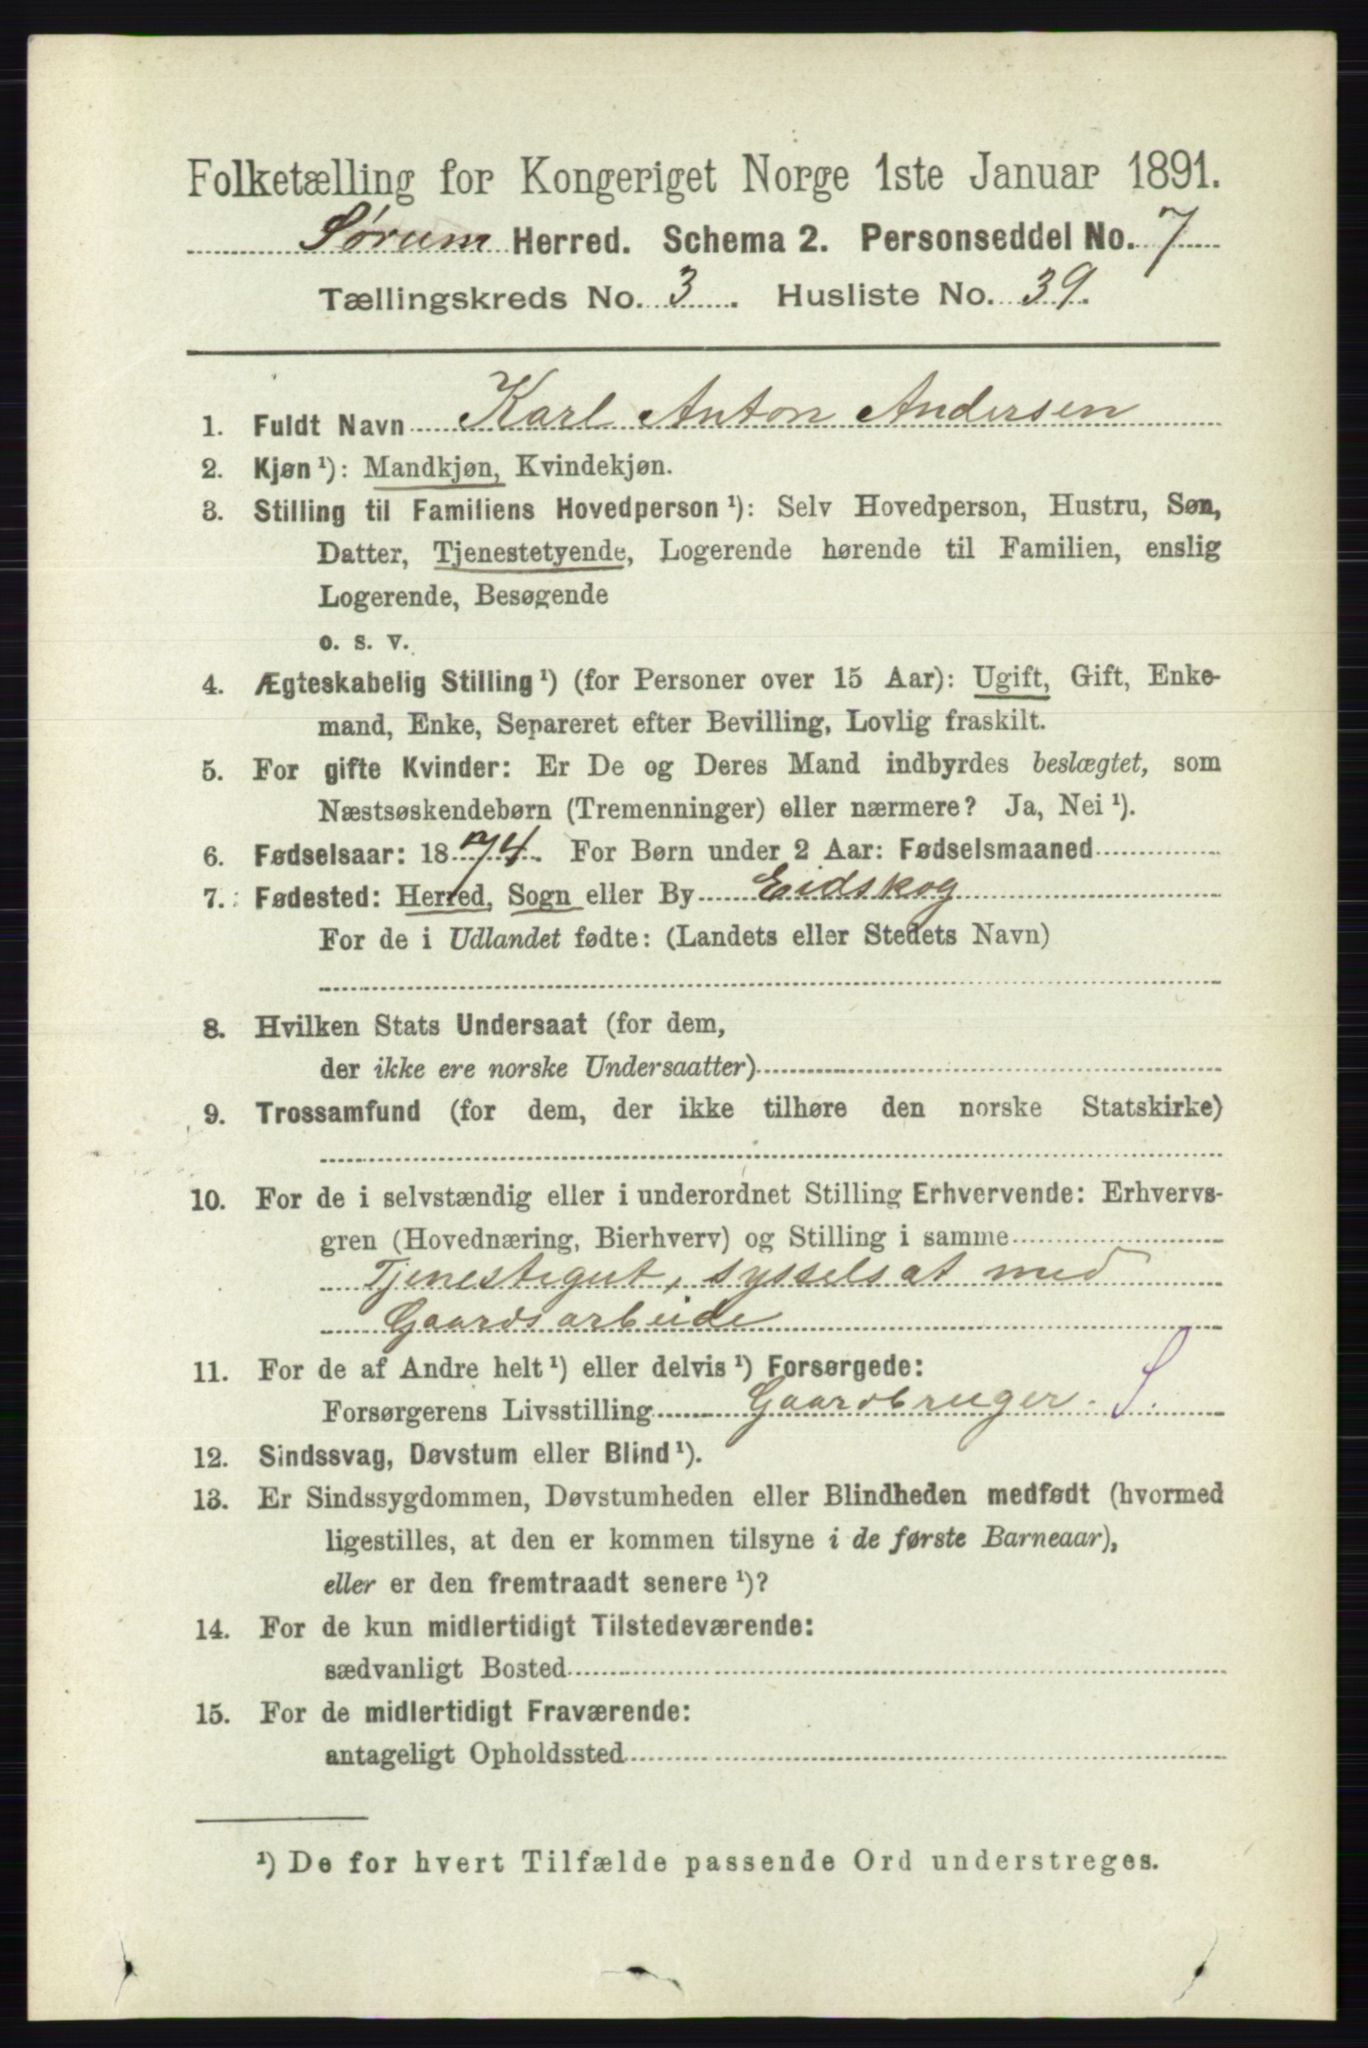 Folketælling for Kongeriget Norge 1ste Januar 1891.
Sørum Herred. Schema 2. Personseddel No. 7
Tællingskreds No. 3. Husliste No. 39.
1. Fuldt Navn Karl Anton Andersen
2. Kjøn¹): Mandkjøn, Kvindekjøn.
3. Stilling til Familiens Hovedperson¹): Selv Hovedperson, Hustru, Søn,
Datter, Tjenestetyende, Logerende hørende til Familien, enslig
Logerende, Besøgende
o. s. v.
4. Ægteskabelig Stilling¹) (for Personer over 15 Aar): Ugift, Gift, Enke-
mand, Enke, Separeret efter Bevilling, Lovlig fraskilt.
5. For gifte Kvinder: Er De og Deres Mand indbyrdes beslægtet, som
Næstsøskendebørn (Tremenninger) eller nærmere? Ja, Nei¹).
6. Fødselsaar: 1874. For Børn under 2 Aar: Fødselsmaaned
7. Fødested: Herred, Sogn eller By Eidskog
For de i Udlandet fødte: (Landets eller Stedets Navn)
8. Hvilken Stats Undersaat (for dem,
der ikke ere norske Undersaatter)
9. Trossamfund (for dem, der ikke tilhøre den norske Statskirke)
10. For de i selvstændig eller i underordnet Stilling Erhvervende: Erhvervs-
gren (Hovednæring, Bierhverv) og Stilling i samme
Tjenestegut, sysselsat med
Gaardsarbeide
11. For de af Andre helt¹) eller delvis¹) Forsørgede:
Forsørgerens Livsstilling Gaardbruger. S.
12. Sindssvag, Døvstum eller Blind¹).
13. Er Sindssygdommen, Døvstumheden eller Blindheden medfødt (hvormed
ligestilles, at den er kommen tilsyne i de første Barneaar),
eller er den fremtraadt senere¹)?
14. For de kun midlertidigt Tilstedeværende:
sædvanligt Bosted
15. For de midlertidigt Fraværende:
antageligt Opholdssted
¹) De for hvert Tilfælde passende Ord understreges.